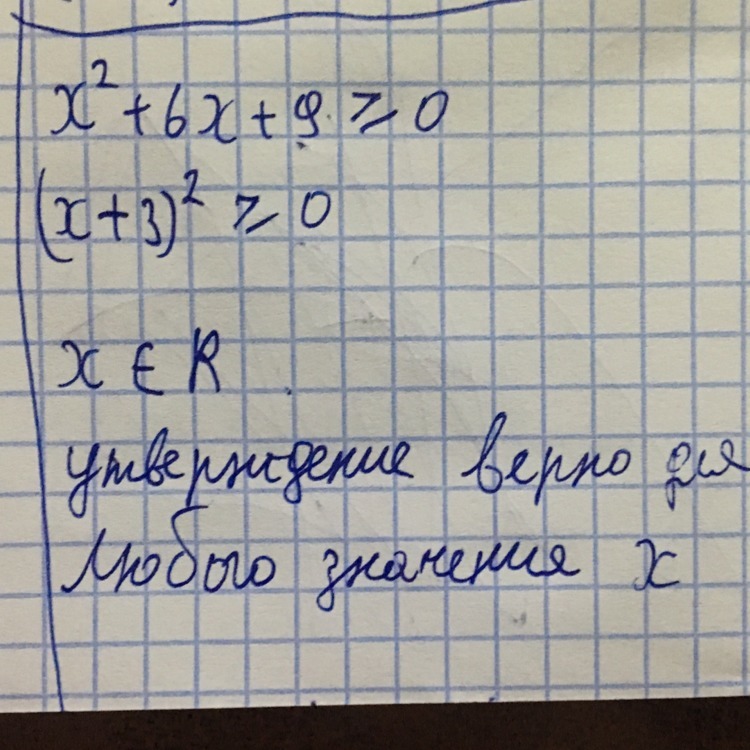 x² + 6x + 9 ≥ 0
(x+3)² ≥ 0
x ∈ R
утверждение верно для
любого значения x